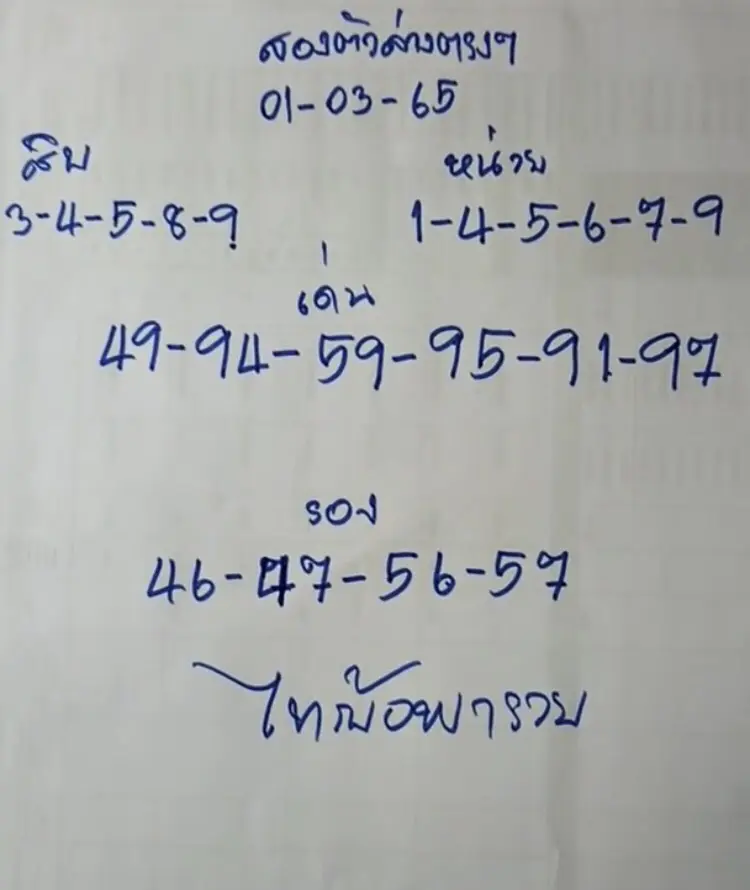 สองตัวล่างตรงๆ
01-03-65
สิบ หน่วย
3-4-5-8-9 1-4-5-6-7-9
เด่น
49-94-59-95-91-97
รอง
46-47-56-57
พารวย